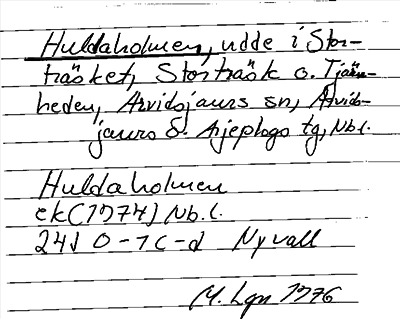 Huldaholmen, udde i Stor-
träsket, Storträsk o. Tjärn-
heden, Arvidsjaurs sn, Arvids-
jaurs o. Arjeplogs tg, Nb.l.
Huldaholmen
ek (1974) Nb.l.
24J 0-1 c-d Nyvall
M. Lgn 1976